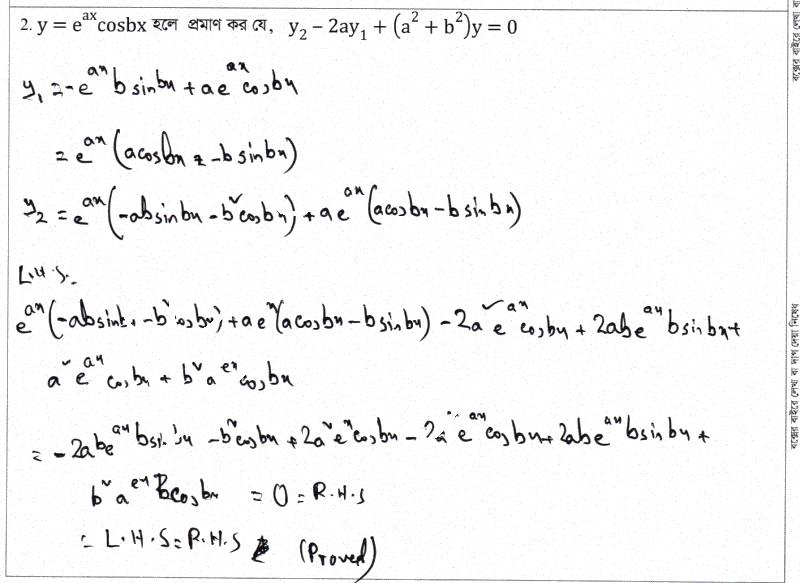 2. y = e^ax cosbx হলে প্রমাণ কর যে, y₂ − 2ay₁ + (a² + b²)y = 0
y₁ = -e^ax b sin bx + a e^ax cos bx
= e^ax (a cos bx - b sin bx)
y₂ = e^ax (-ab sin bx - b² cos bx) + a e^ax (a cos bx - b sin bx)
L.H.S.
e^ax (-ab sin bx - b² cos bx) + a e^x (a cos bx - b sin bx) - 2a² e^ax cos bx + 2ab e^ax b sin bx +
a² e^ax cos bx + b² a e^x cos bx
= -2ab e^ax b sin bx - b² cos bx + 2a² e^x cos bx - 2a² e^ax cos bx + 2ab e^ax b sin bx +
b² a e^x b cos bx = 0 = R.H.S
= L.H.S = R.H.S (Proved)
বক্সের বাইরে লেখা বা দাগ দেয়া নিষেধ
বক্সের বাইরে লেখা বা